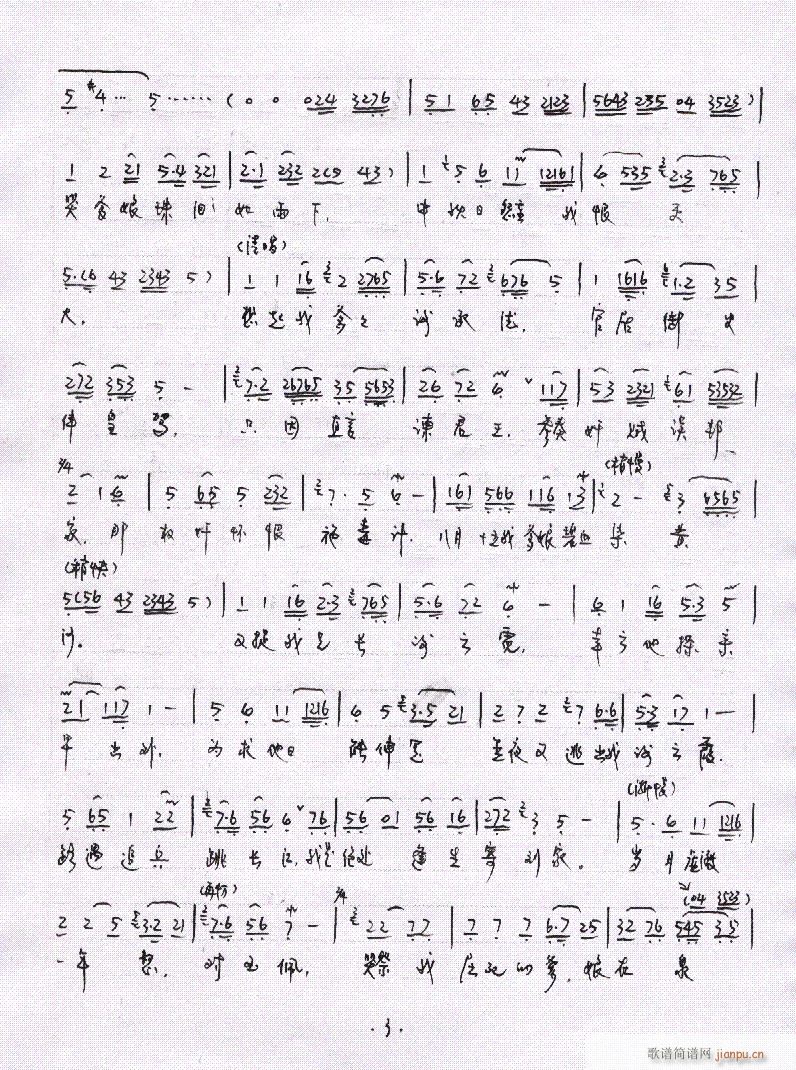 5 #4··· 5······ (0 0 024 3276 | 51 65 43 2123 | 5643 235 04 3523) |
1 2 21 5·4 321 | 2·1 232 2(0 43) | 1 5 6 11 12161 | 6 535 2·3 765 |
哭爹娘珠泪如雨下, 中秋日 我恨 天
5·(6 43 2343 5) | 1 1 16 2 2765 | 5·6 72 676 5 | 1 1616 1·2 35 |
(清唱)
大。 想起我爹々谢承德, 官居御史
272 353 5 - | 7·2 26765 35 5653 | 26 72 6 117 | 53 2321 61 53532 |
伴皇驾, 只因直言谏君王, 参奏奸贼误邦
3/4
2 1 6 | 5 65 5 232 | 7·5 6 - | 161 566 116 13 | 2 - 3 6565 |
(稍慢)
家, 那权奸怀恨施毒计, 八月十五我爹娘碧血染黄
(稍快)
5(56 43 2343 5) | 1 1 16 2·3 765 | 5·6 72 6 - | 6 1 16 5·3 5 |
沙。 又捉我兄长谢云霓, 幸亏他探亲
21 117 1 - | 5 6 11 1216 | 6 5 3·5 21 | 2 7 2 7 6·6 | 5·3 17 1 - |
早出外, 为求他日能伸冤 星夜又逃出我谢云霞。
5 65 1 22 | 7·6 56 6 76 | 56 01 56 16 | 272 3 5 - | 5·6 11 1216 |
(渐慢)
路遇追兵跳长江, 我是绝处逢生寄刘家。 岁月虚度
2 2 5 3·2 21 | 7·6 56 7 - | 22 77 | 7 7 7 6·7 25 | 32 76 545 35 |
(04 3523)
3/4
一年整, 对玉佩, 哭祭我屈死的爹娘在泉
·3·
歌谱简谱网 jianpu.cn